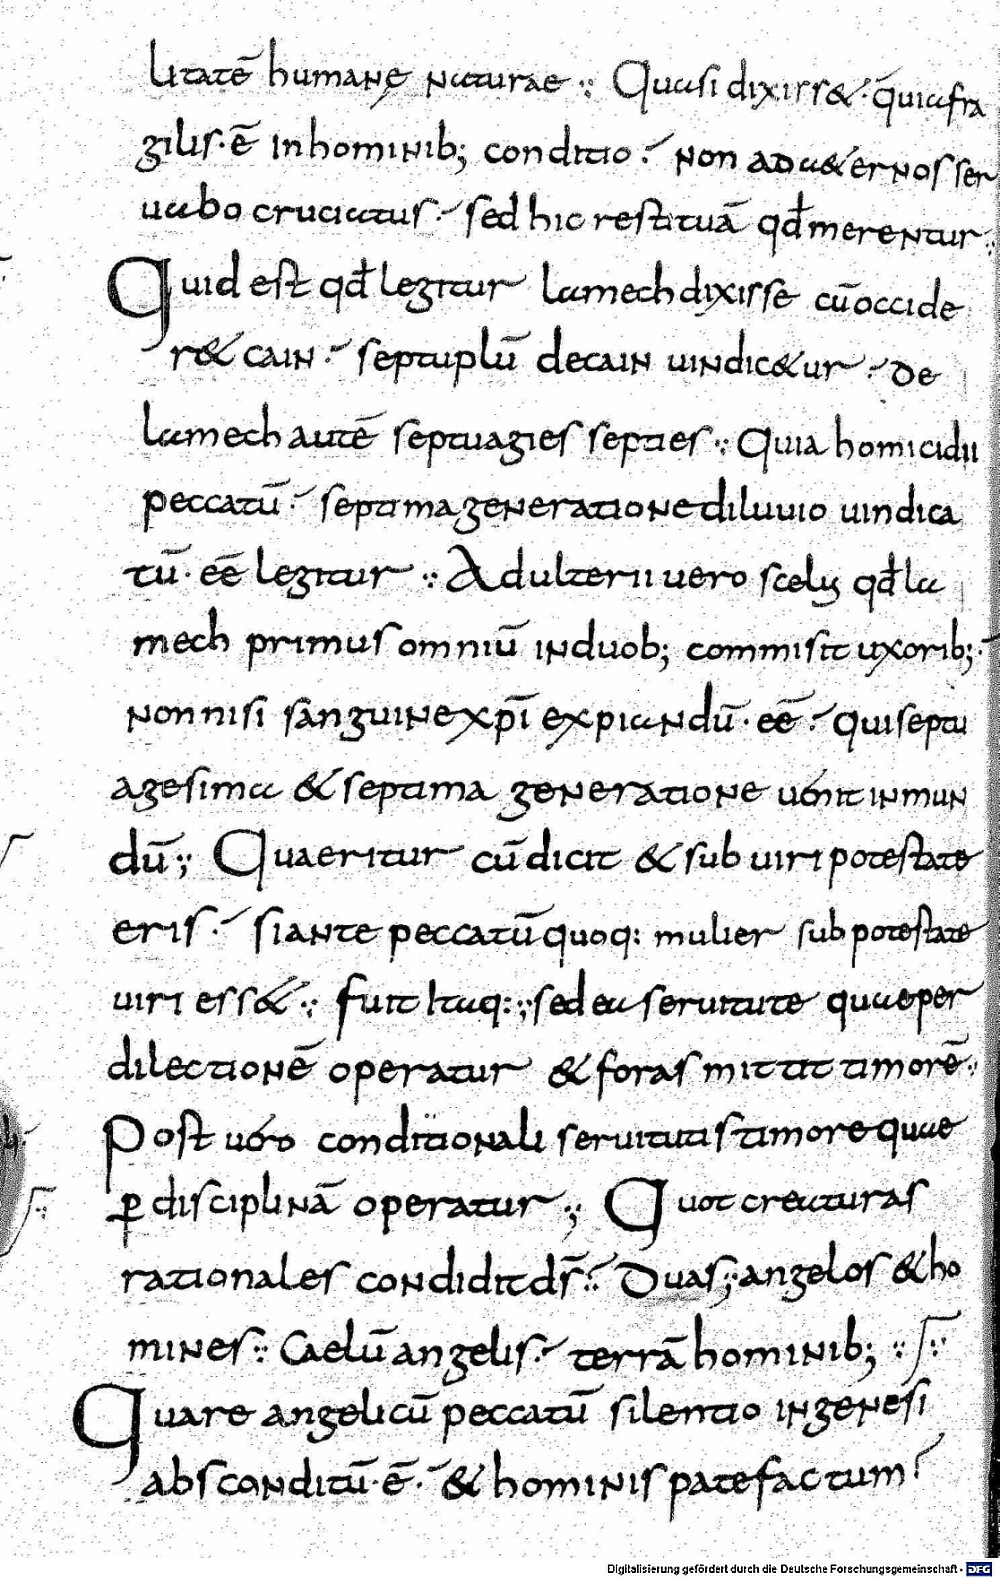 litatē humanę naturae ·:· Quasi dixiss& · q̄uia fra
gilis · ē In hominib; conditio ·´ Non ad ae&ernos ser
uabo cruciatus ·´ sed hic restituā qđ merentur ·:·
Quid est qđ legitur lamech dixisse cū occide
r& cain ·´ septuplū de cain uindic&ur ·´ De
lamech autē septuagies septies ·:· Quia homicidii
peccatū ·´ septima generatione diluuio uindica
tū · eē legitur ·:· Adulterii uero scelꝰ qđ la
mech primus omniū in duob; commisit uxorib; ·´
Non nisi sanguine xp̄i expiandū · eē ·´ Qui septu
agesima & septima generatione uenit in mun
dū ·; Quaeritur cū dicit & sub uiri potestate
eris ·´ si ante peccatū quoq: mulier sub potestate
uiri ess& ·:· Fuit Itaq: ·; sed ea seruitute quae per
dilectionē operatur & foras mittit timorē ·:·
Post uero conditionali seruitutis timore quae
ꝑ disciplinā operatur ·; Quot creaturas
rationales condidit d̄s ·:´ Duas ; angelos & ho
mines ·:· Caelū angelis ·´ terrā hominib; ·:·
Quare angelicū peccatū silentio in genesi
absconditū · ē ·´ & hominis patefactum ·´
Digitalisierung gefördert durch die Deutsche Forschungsgemeinschaft - DFG